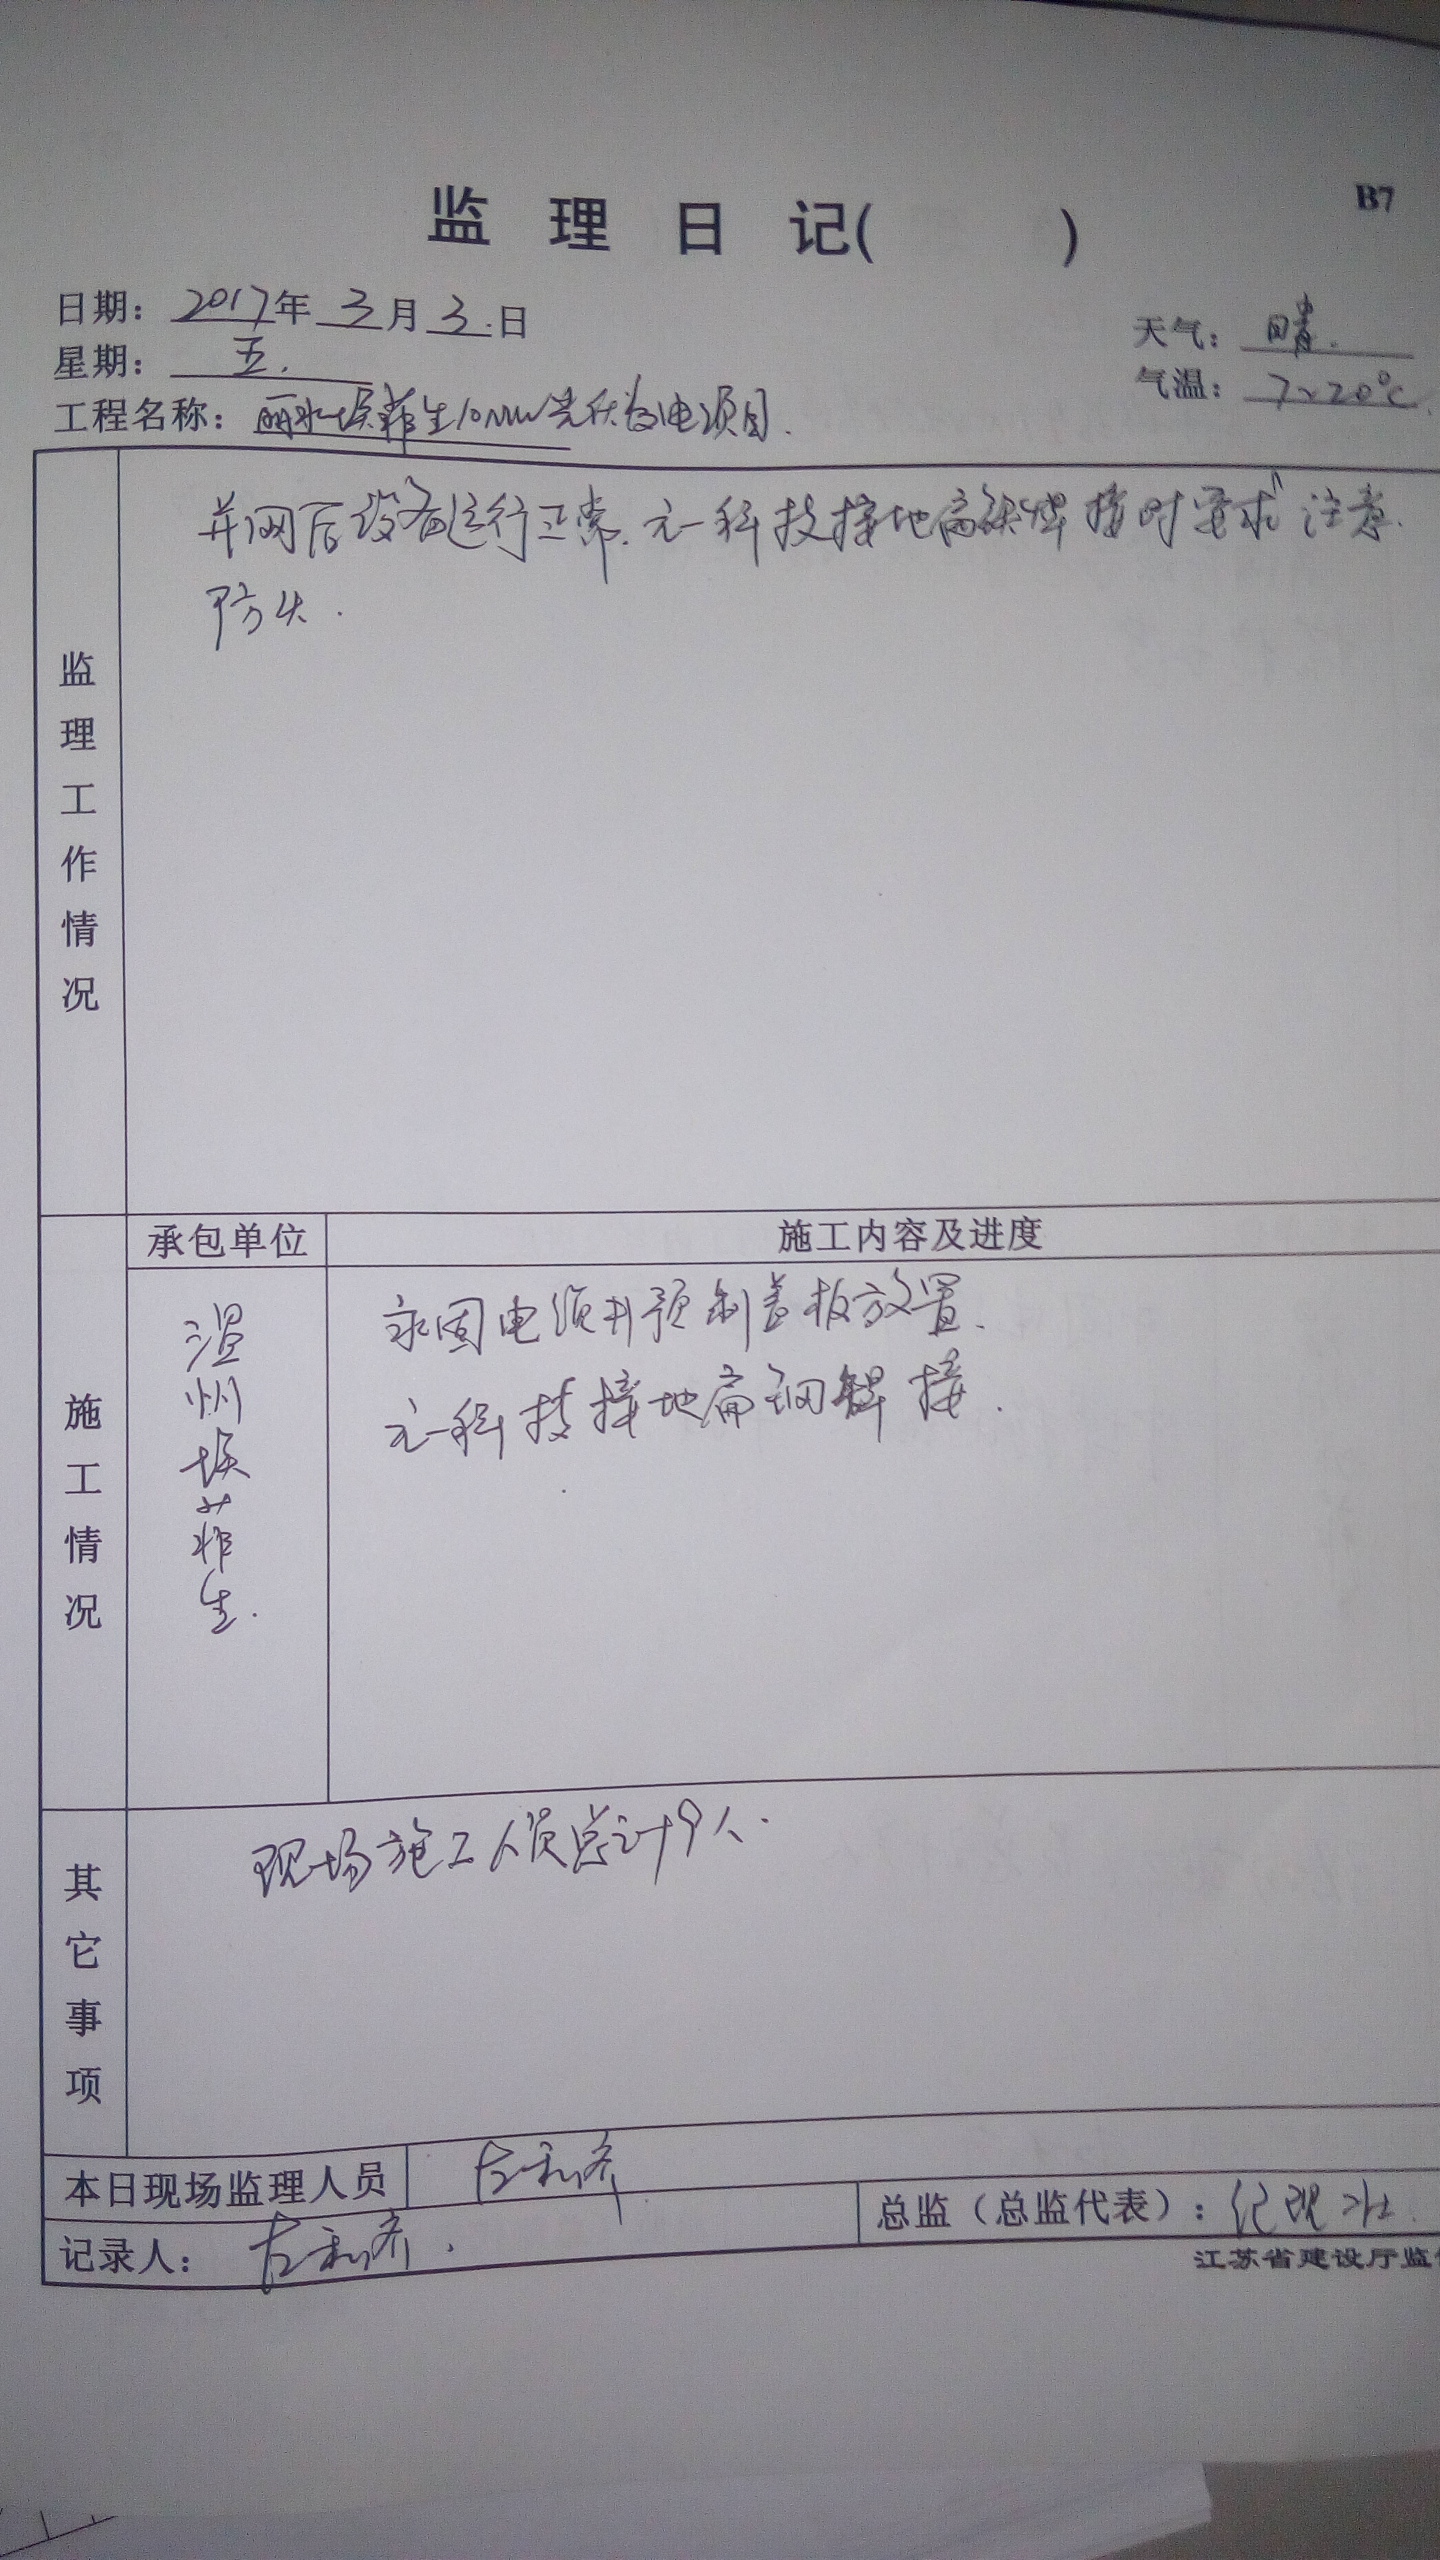 B7
监 理 日 记(　　　)
日期: 2017年 3月 3.日
天气: 晴.
星期: 五.
气温: 7~20℃.
工程名称: 丽水埃菲生10MW光伏发电项目.
监理工作情况
并网后设备运行正常.元一科技接地扁铁焊接时要求注意.
防火.
承包单位
施工内容及进度
施工情况
温州埃菲生.
永固电缆井预制盖板放置.
元一科技接地扁钢焊接.
其它事项
现场施工人员总计9人.
本日现场监理人员
记录人:
总监（总监代表）:
江苏省建设厅监